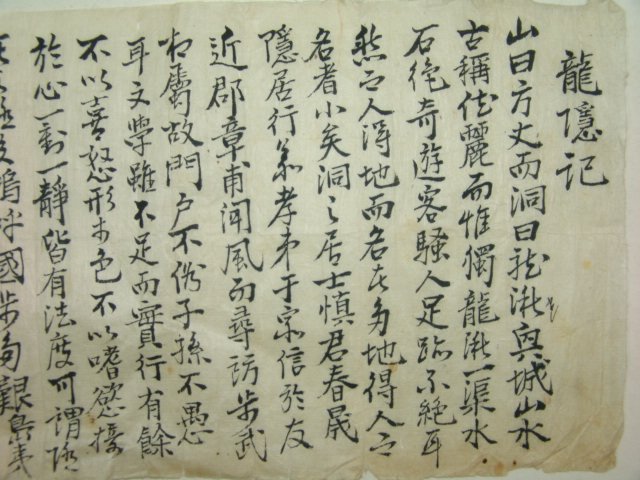 龍隱記
山曰方丈而洞曰龍湫與城山水
古稱佳麗而惟獨龍湫一渠水
石絶奇遊客騷人足跡不絶耳
然而人得地而名者多地得人而
名者小矣洞之居士愼君春晟
隱居行義孝弟于家信於友
近郡章甫聞風而尋訪步武
相屬故門戶不俗子孫不愚
耳文學雖不足而實行有餘
不以喜怒形於色不以嗜慾接
於心一動一靜皆有法度可謂隱
嗚呼國步多艱島夷